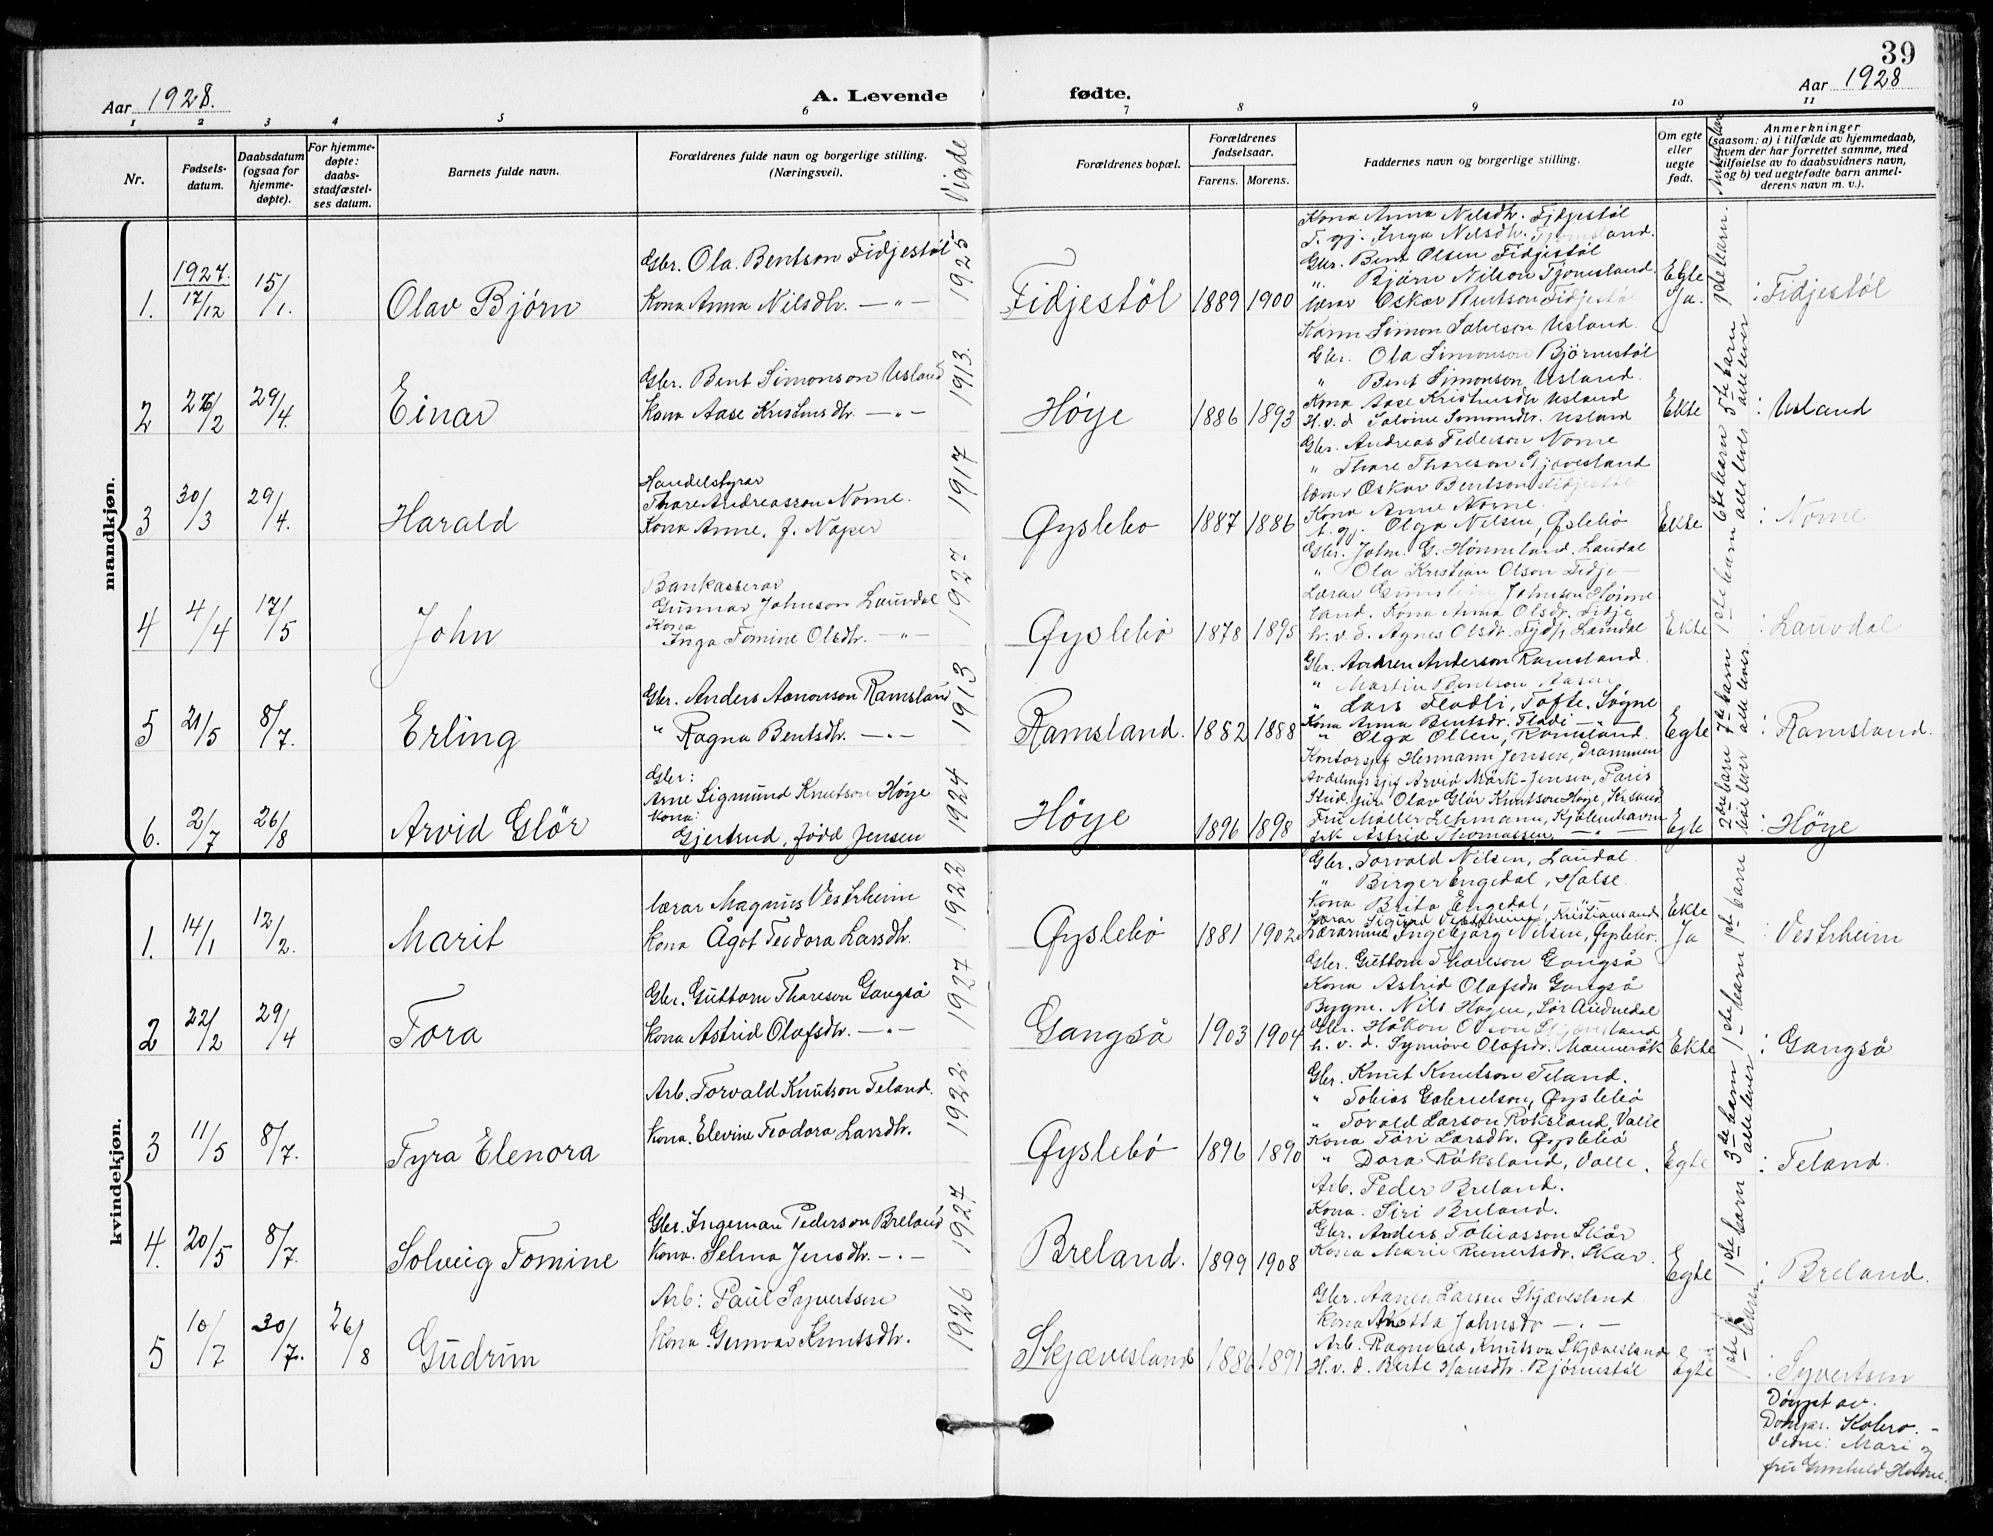 39
Aar 1928.
A. Levende fødte.
Aar 1928
1 2 3 4 5 6 7 8 9 10 11
Nr.
Fødselsdatum.
Daabsdatum (ogsaa for hjemmedøpte).
For hjemmedøpte: daabsstadfæstelses datum.
Barnets fulde navn.
Forældrenes fulde navn og borgerlige stilling. (Næringsvei).
Vigde
Forældrenes bopæl.
Forældrenes fødselsaar.
Farens. Morens.
Faddernes navn og borgerlige stilling.
Om egte eller uegte født.
Anmerkninger
(saasom: a) i tilfælde av hjemmedaab, hvem der har forrettet samme, med tilføielse av to daabsvidners navn, og b) ved uegtefødte barn anmelderens navn m. v.).
mandkjøn.
1. 1927. 17/12 15/1. Olav Bjørn
Gbr. Ola Bentson Fidjestøl
Kona Anna Nilsdtr. —"—
1925
Fidjestøl 1889 1900
Kona Anna Nilsdtr. Fidjestøl
T. gj. Inga Nilsdtr. Tjomsland.
Gbr. Bent Olsen Fidjestøl
" Bjørn Nilson Tjomsland.
lærar Oskar Bentson Fidjestøl
Egte Ja.
1ste barn.
: Fidjestøl
2 26/2 29/4. Einar
Gbr. Bent Simonson Usland
Kona Aase Kristensdtr. —"—
1913.
Høye 1886 1893
Simon Salveson Usland.
Gbr. Ola Simonson Bjørnestøl
" Bent Simonson Usland.
Kona Aase Kristensdtr Usland
H.v.d. Salvine Simonsdtr. Usland
Ekte
5te barn alle lever
: Usland
3 30/3 29/4. Harald
Handelstyrar
Thare Andreasson Nome.
Kona Anne, f. Naper
1917
Øyslebø 1887 1886
Gbr. Andreas Pederson Nome
" Thare Thareson Skjævesland
lærar Oskar Bentson Fidjestøl
Kona Anne Nome.
Olga Nilsen, Øslebø
Ekte
6te barn alle lever
: Nome
4 4/4 17/5 John
Bankasserar
Gunnar Johnson Lauvdal
Kona
Inga Tomine Olsdtr. —"—
1927
Øyslebø 1878 1895
Gbr. John G. Hønneland, Laudal
" Ola Kristian Olson Fidje
land. Kona Anna Olsdtr. Fidje
h.v.d. Agnes Olsdtr. Fidje Laudal
Ekte
1ste barn
: Lauvdal
5 21/5 8/7. Erling
Gbr. Anders Aanonson Ramsland
" Ragna Bentsdtr. —"—
1913
Ramsland. 1882 1888
Gbr. Andreas Anderson Ramsland.
" Martin Bentson
" Lars Flodli, Tofte, Søgne
Kona Anna Bentsdtr. —"—
" Olga Olsen, Ramsland.
Egte
7de barn alle lever.
: Ramsland.
6. 2/7 26/8 Arvid Glör
Gbr:
Arne Sigmund Knutson Høye
Kona:
Gjertrud, fødd Jensen
1924
Høye 1896 1898
Kontorsjef Hermann Jensen, Drammen
Avdelingssjef Arvid Mörk-Jensen, Paris
Stud. jur. Olav Glör Knutson Høye, Kr.sand
Fru Møller Lehmann, Kjøbenhavn
frk Astrid Thomassen —"—
Egte
2det barn alle lever
: Høye
kvindekjøn.
1. 14/1 12/2. Marit
lærar Magnus Vestrheim
Kona Ågot Teodora Larsdtr.
1922
Øyslebø 1881 1902
Gbr. Torvald Nilsen, Laudal.
" Birger Engedal, Halse.
Kona Brita Engedal, —"—
Lærar Sigurd Vestrheim, Kristiansand
Lærarinne Ingebjørg Nilsen, Øyslebø.
Ekte Ja
1st barn
: Vestrheim
2 22/2 29/4 Tora
Gbr. Guttorm Thareson Gangså
Kona Astrid Olafsdtr. —"—
1927
Gangså 1903 1904
Gbr. Guttorm Thareson Gangså
Kona Astrid Olafsdtr Gangså
Bygm. Nils Hagen, Sør Audnedal
Gbr. Håkon Olson Skjævesland
h. v. d. Synnøve Olafsdr. Mannråk
Ekte
1ste barn
: Gangså
3 11/5 8/7. Tyra Elenora
Arb. Torvald Knutson Teland.
Kona. Elevine Teodora Larsdtr.
1922
Øyslebø 1896 1890
Gbr. Knut Knutson Teland.
" Tobias Gabrielson, Øyslebø
" Torvald Larson Röksland, Valle
Kona Töri Larsdtr. Øyslebø
" Dora Röksland, Valle.
Egte
3de barn alle lever
: Teland.
4. 20/5 8/7. Solveig Tomine
Gbr. Ingeman Pederson Breland
Kona. Selma Jensdtr. —"—
1927
Breland. 1899 1908
Arb. Peder Breland.
Kona. Siri Breland.
Gbr. Anders Tobiasson Skår
Kona Marie Reinertsdr. Skar.
Egte
1ste barn
: Breland.
5 10/7 30/7. 26/8 Gudrun
Arb: Paul Syvertsen
Kona Gunvor Knutsdtr.
1926
Skjævesland 1886 1891
Gbr. Aanen Larsen Skjævesland
Kona Anetta Johnsdr —"—
Arb. Ragnvald Knutson Skjævesland
H.v.d. Berte Hansdtr. Bjørnestøl
Egte
1ste barn
: Syvertsen
Døypt av.
Dompr. Kolsro. –
Vidne: Mari
fru Gunhild